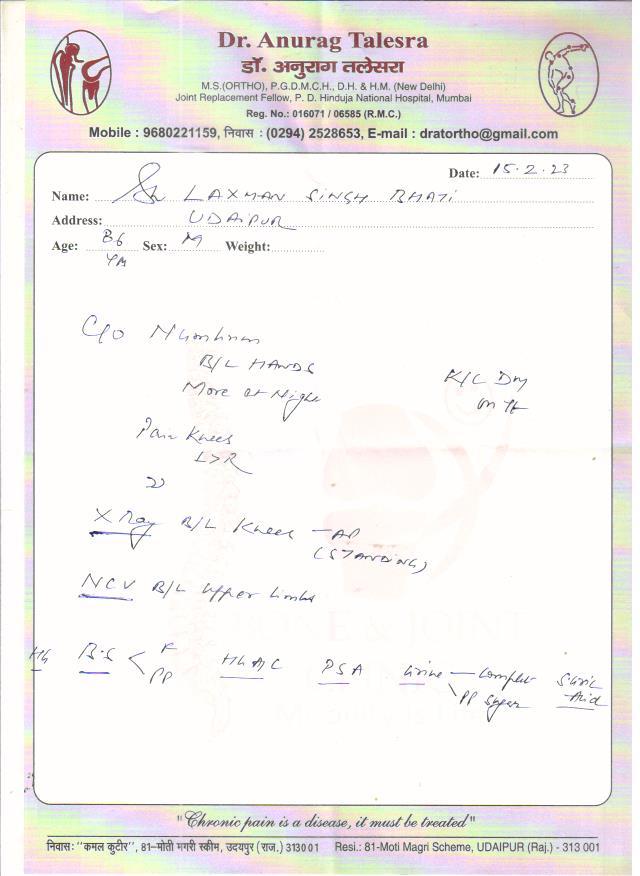 Dr. Anurag Talesra
डॉ. अनुराग तलेसरा
M.S.(ORTHO), P.G.D.M.C.H., D.H. & H.M. (New Delhi)
Joint Replacement Fellow, P. D. Hinduja National Hospital, Mumbai
Reg. No.: 016071 / 06585 (R.M.C.)
Mobile : 9680221159, निवास : (0294) 2528653, E-mail : dratortho@gmail.com
Date: 15.2.23
Name: Sh LAXMAN SINGH BHATI
Address: UDAIPUR
Age: 86 Sex: M Weight:
C/o Numbness
B/L HANDS
More at Night
K/C Dm
on Tt
Pain Knees
L>R
X Ray B/L Knees - AP
(STANDING)
NCV B/L Upper Limbs
Hb B.S < F HbA1C PSA Urine - Complete S. Uric
PP PP Sugar Acid
BONE & JOINT
"Chronic pain is a disease, it must be treated"
निवास: "कमल कुटीर", 81-मोती मगरी स्कीम, उदयपुर (राज.) 313001 Resi.: 81-Moti Magri Scheme, UDAIPUR (Raj.) - 313 001